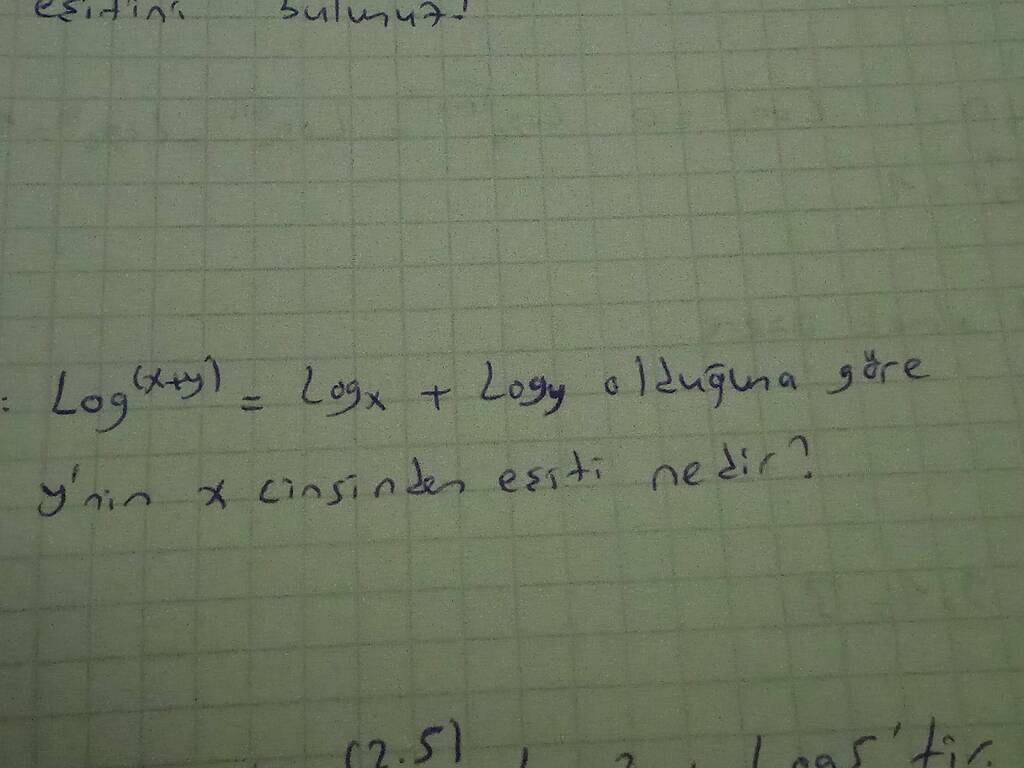 eşitini bulunuz!
: Log(x+y) = Logx + Logy olduğuna göre
y'nin x cinsinden eşiti nedir?
(2.5) Log5'tir.